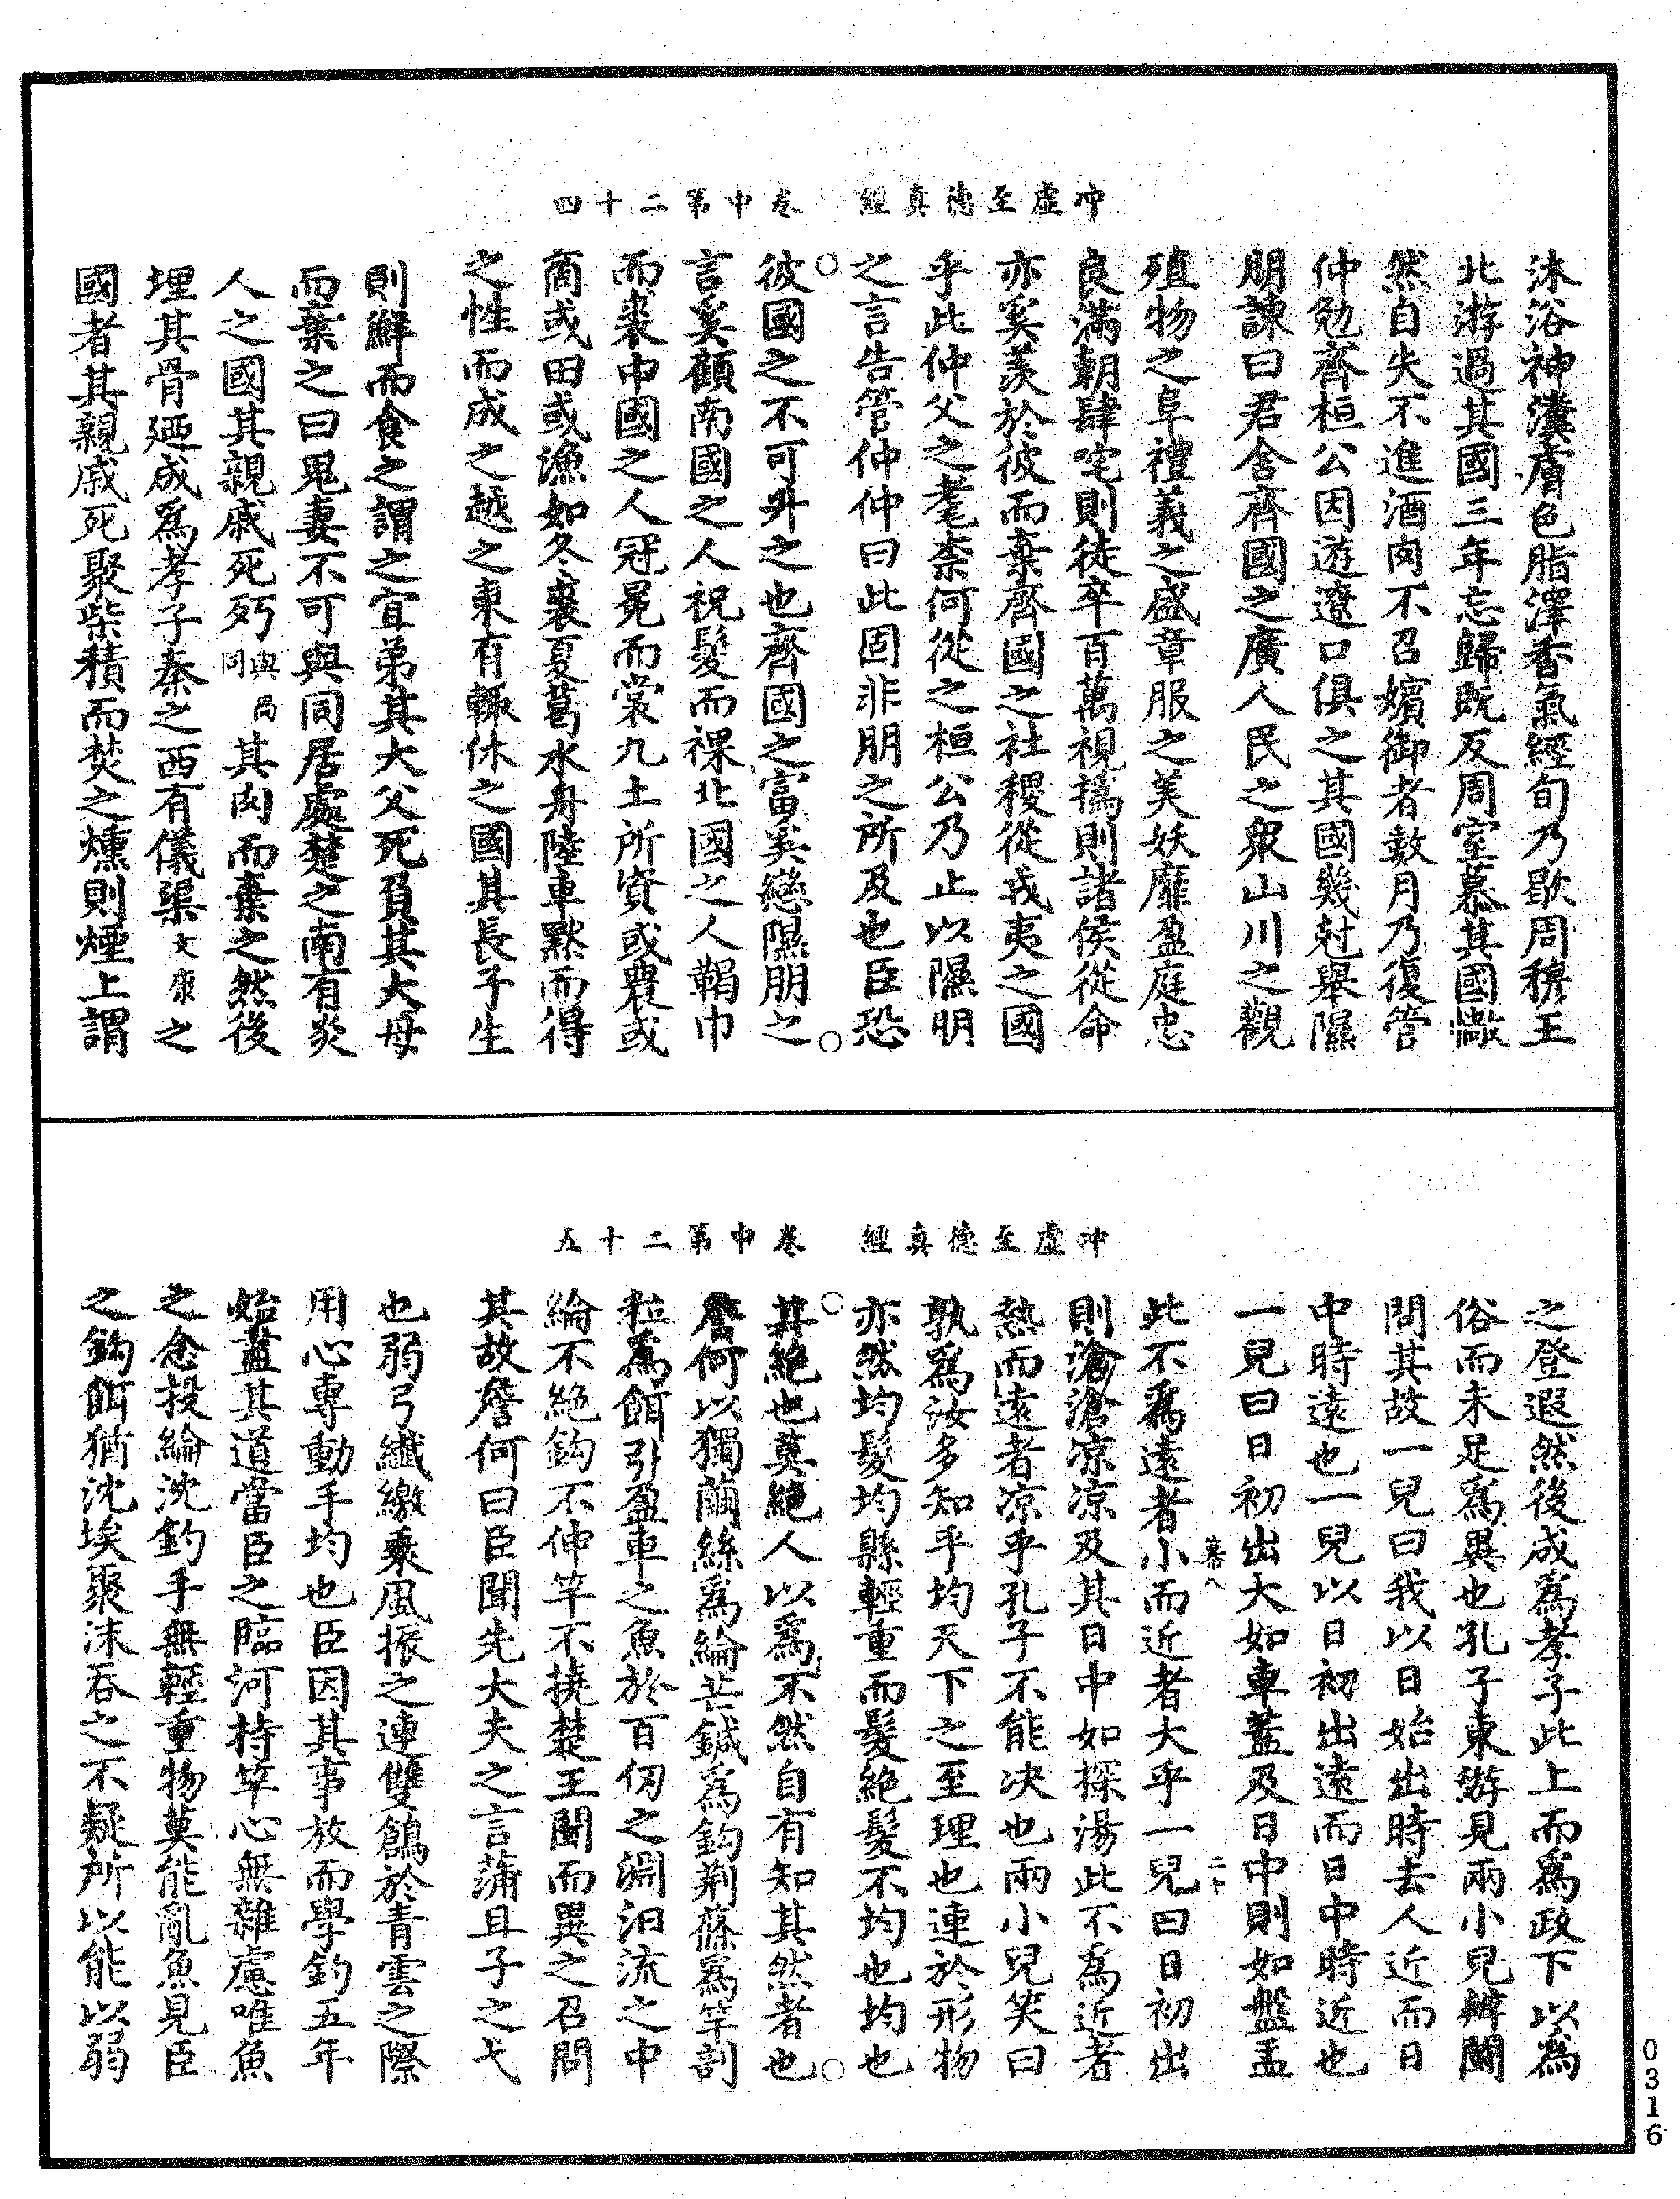 沖虛至德真經　卷中第二十四
沐浴神瀵膚色脂澤香氣經旬乃歇周穆王
北游過其國三年忘歸既反周室慕其國㦂
然自失不進酒肉不召嬪御者數月乃復管
仲勉齊桓公因遊遼口俱之其國幾尅舉隰
朋諫曰君舍齊國之廣人民之衆山川之觀
殖物之阜禮義之盛章服之美妖靡盈庭忠
良滿朝肆咤則徒卒百萬視撝則諸侯從命
亦奚羨於彼而棄齊國之社稷從戎夷之國
乎此仲父之耄柰何從之桓公乃止以隰朋
之言告管仲仲曰此固非朋之所及也臣恐
彼國之不可升之也齊國之富奚戀隰朋之
言奚顧南國之人祝髮而裸北國之人鞨巾
而裘中國之人冠冕而裳九土所資或農或
商或田或漁如冬裘夏葛水舟陸車默而得
之性而成之越之東有輒休之國其長子生
則鮮而食之謂之宜弟其大父死負其大母
而棄之曰鬼妻不可與同居處楚之南有炎
人之國其親戚死㱙與咼同其肉而棄之然後
埋其骨廼成爲孝子秦之西有儀渠文康之
國者其親戚死聚柴積而焚之燻則煙上謂
沖虛至德真經　卷中第二十五
之登遐然後成爲孝子此上而爲政下以爲
俗而未足爲異也孔子東游見兩小兒辯鬬
問其故一兒曰我以日始出時去人近而日
中時遠也一兒以日初出遠而日中時近也
一兒曰日初出大如車蓋及日中則如盤盂
此不爲遠者小而近者大乎一兒曰日初出
則滄滄凉凉及其日中如探湯此不爲近者
熱而遠者凉乎孔子不能决也兩小兒笑曰
孰爲汝多知乎均天下之至理也連於形物
亦然均髮均縣輕重而髮絕髮不均也均也
其絕也莫絕人以爲不然自有知其然者也
詹何以獨繭絲爲綸芒鍼爲鈎荆篠爲竿剖
粒爲餌引盈車之魚於百仞之淵汩流之中
綸不絕鈎不伸竿不撓楚王聞而異之召問
其故詹何曰臣聞先大夫之言蒲且子之弋
也弱弓纖繳乘風振之連雙鶬於青雲之際
用心專動手均也臣因其事放而學釣五年
始盡其道當臣之臨河持竿心無雜慮唯魚
之念投綸沈釣手無輕重物莫能亂魚見臣
之鈎餌猶沈埃聚沫吞之不疑所以能以弱
0316